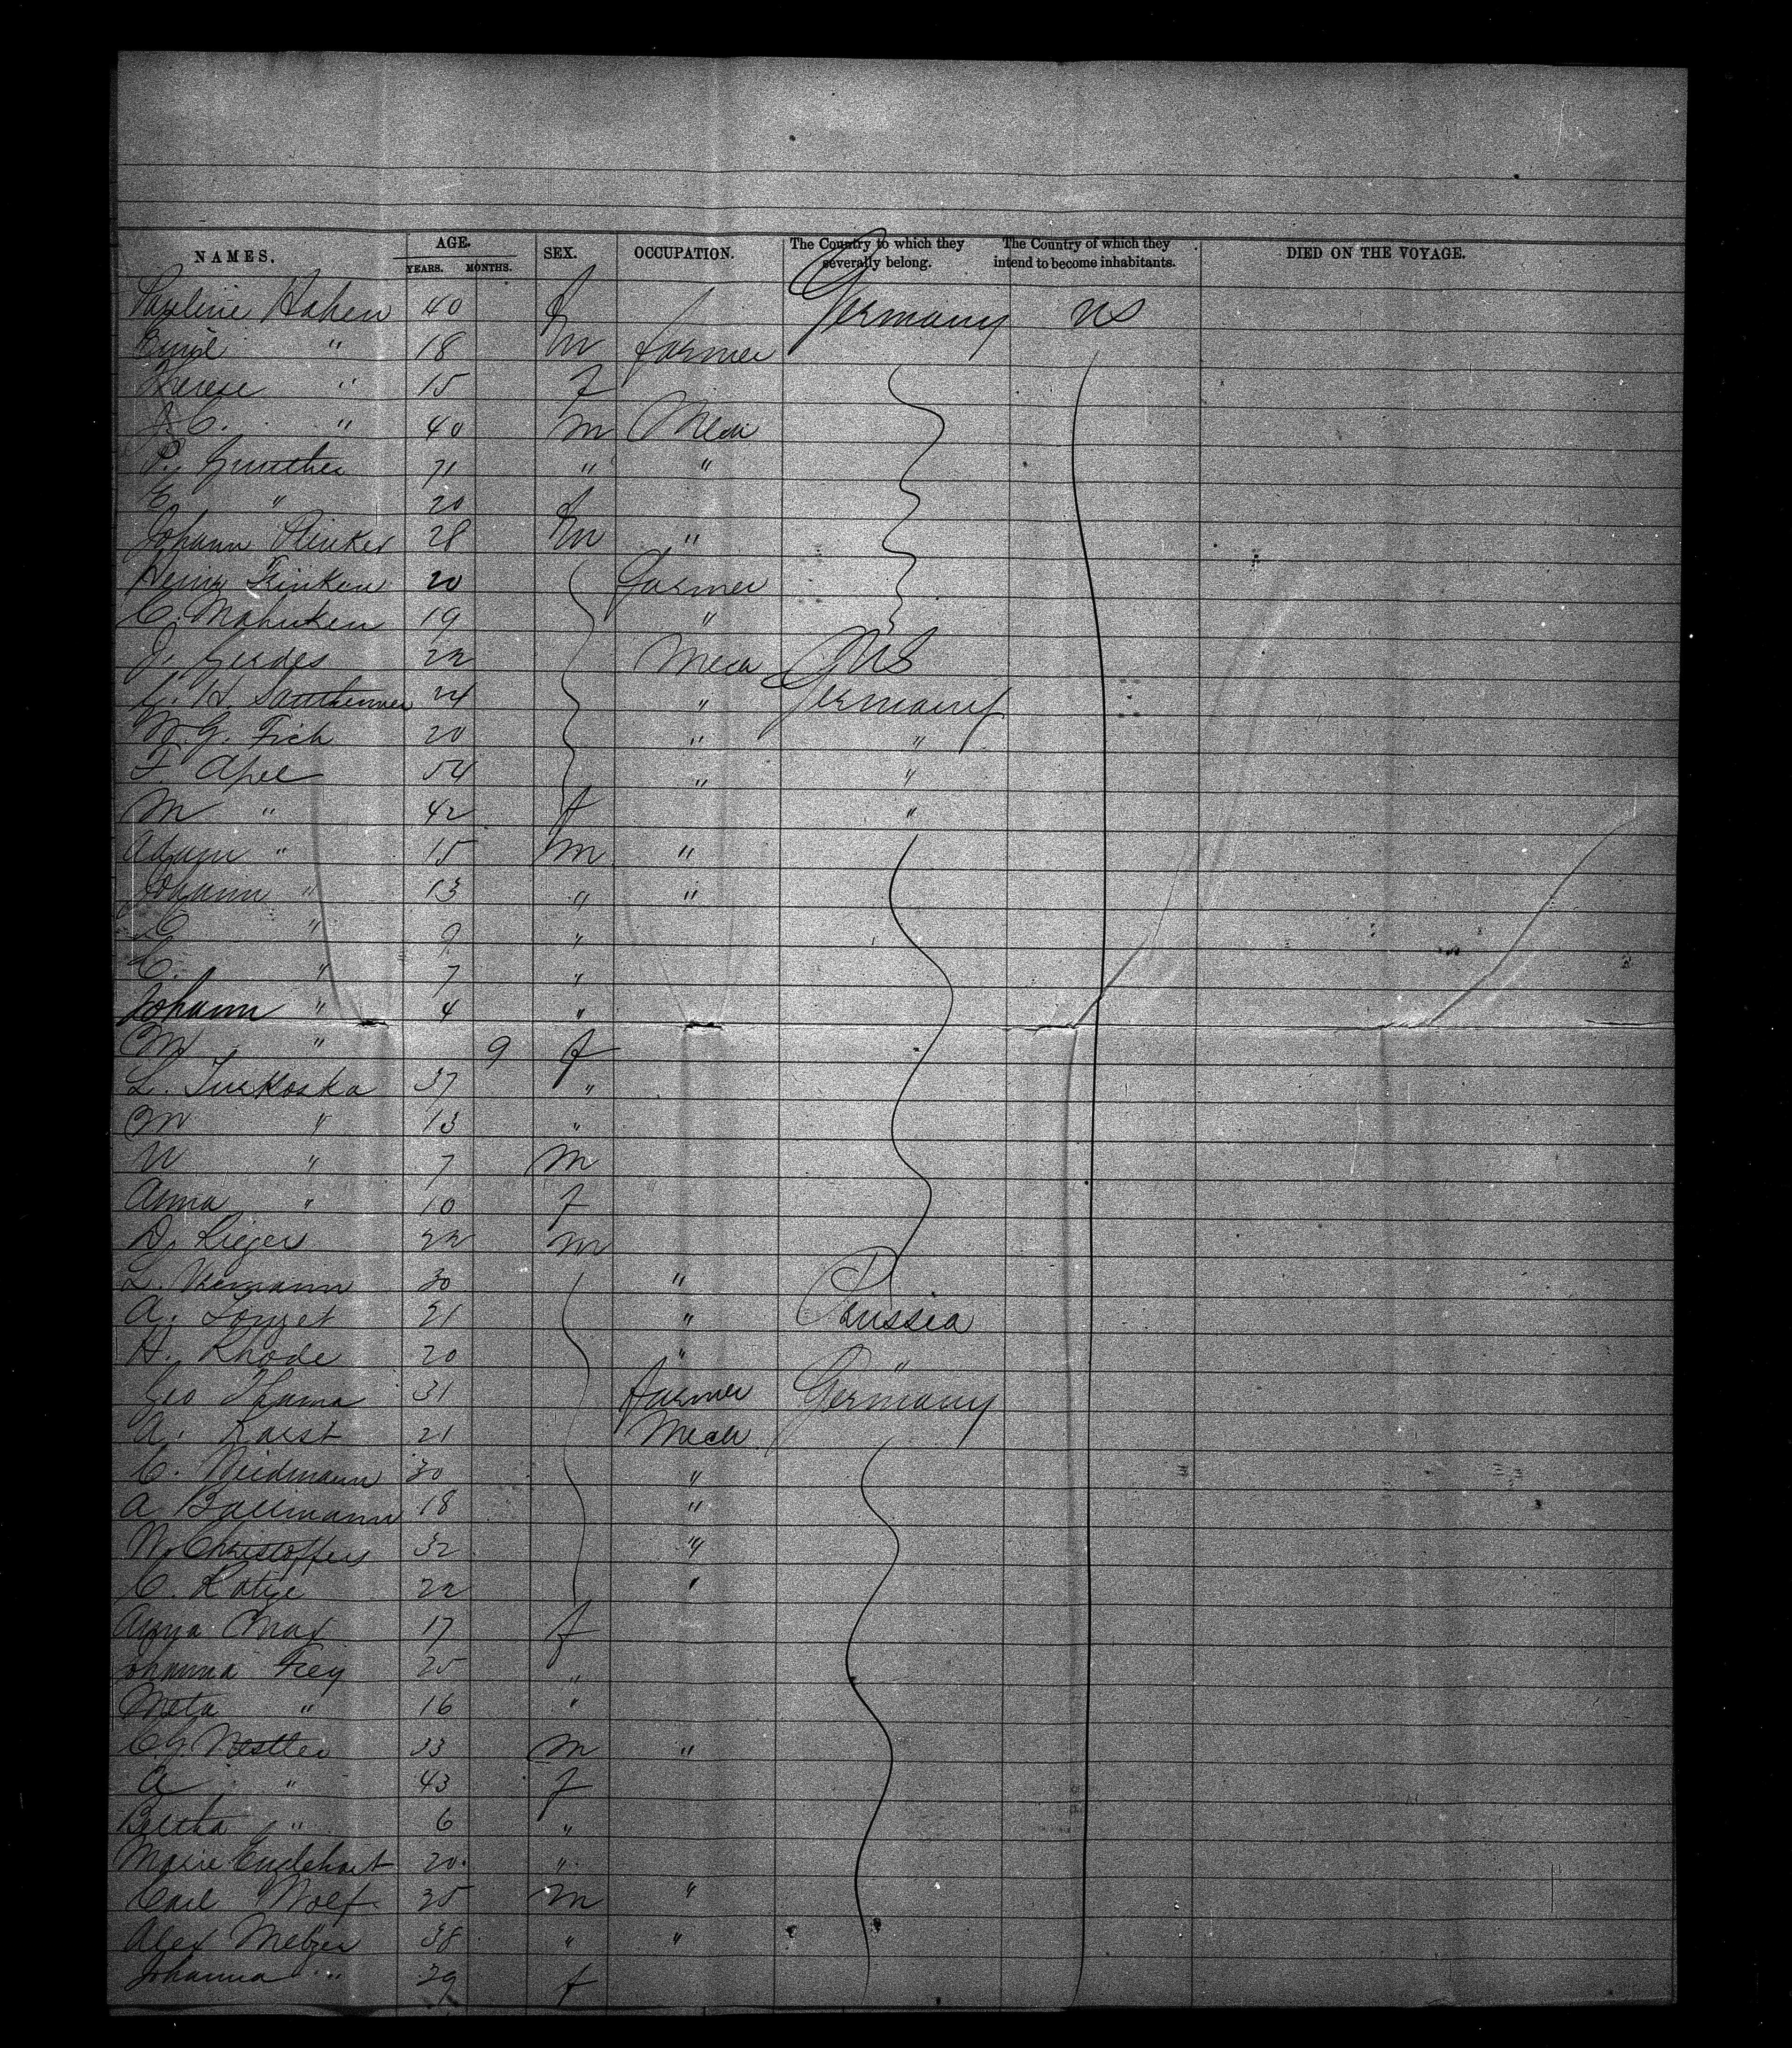 NAMES. AGE. SEX. OCCUPATION. The Country to which they severally belong. The Country of which they intend to become inhabitants. DIED ON THE VOYAGE.
YEARS. MONTHS.
Pauline Haken 40 f Germany US
Emil " 18 m farmer
Therese " 15 f
J. C. " 40 m Mech
P. Gunther 71 " "
E " 20 f
Johann 28 m "
Heinr Finken 20 farmer
C. Mahnken 19 "
J. Gerdes 22 Mech US
C. H. 24 " Germany
W. G. Fick 20 " "
F. Apel 54 " "
M " 42 f "
Adam " 15 m "
Johann " 13 " "
E " 9 "
C. " 7 "
Johann " 4 "
M " 9 f
L. Turkoska 37 "
M " 13 "
W " 7 m
Anna " 10 f
D. Rieger 22 m
L. 30 "
A. 21 " Russia
H. Rhode 20 " "
Geo Thama 31 farmer Germany
A. Karst 21 Mech
C. Weidmann 30 "
A Ballmann 18 "
W. Christoffers 32 "
C. 22 "
Anna May 17 f
Johanna Frey 25 "
Meta " 16 "
C. G. Nestler 33 m "
A " 43 f
Bertha " 6 "
Marie 20 "
Carl Wolf 35 m "
Alex Metzer 38 " "
Johanna " 29 f